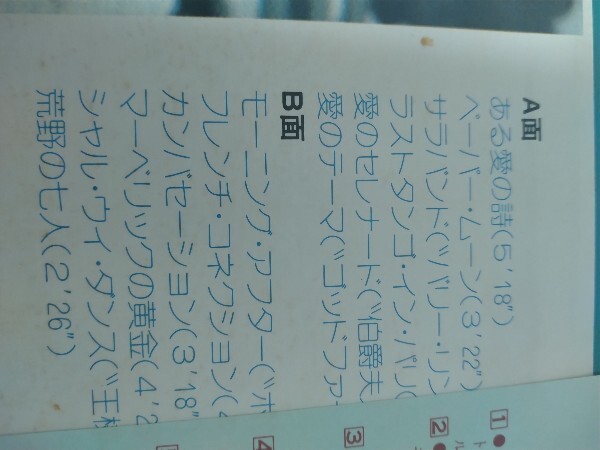 A面
ある愛の詩(5′18″)
ペーパー・ムーン(3′22″)
サラバンド(〝バリー・リン
ラストタンゴ・イン・パリ(
愛のセレナード(〝伯爵夫
愛のテーマ(〝ゴッドファ
B面
モーニング・アフター(〝ポ
フレンチ・コネクション(4
カンバセーション(3′18″
マーベリックの黄金(4′2
シャル・ウィ・ダンス(〝王様
荒野の七人(2′26″)
1●
2●
3
4